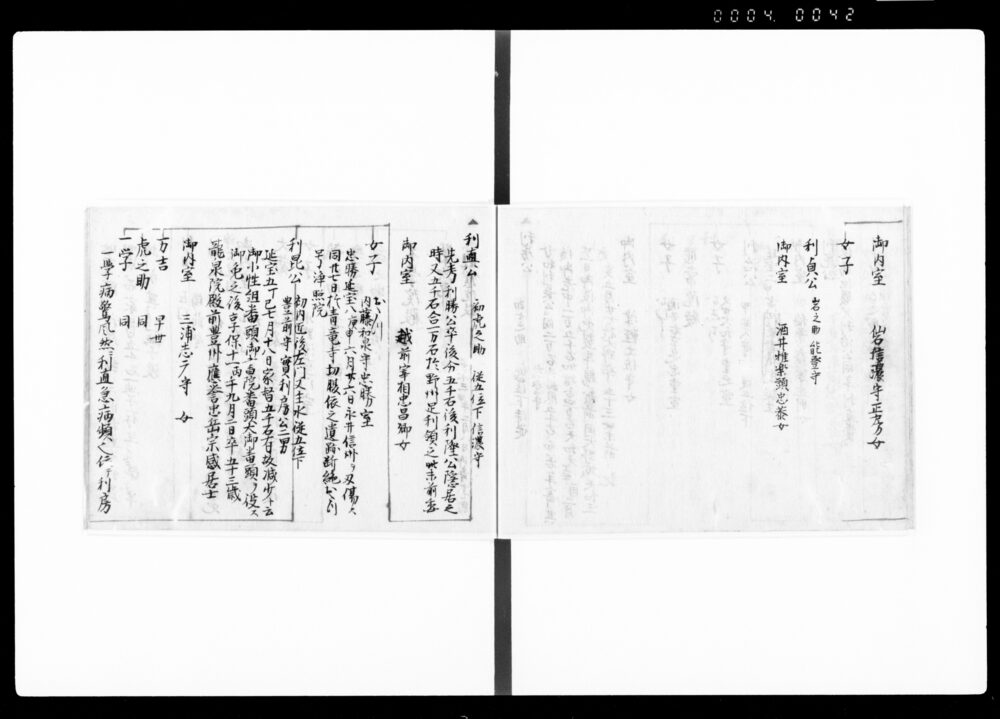 0004. 0042
御内室 仙石信濃守正房女
女子
利貞公 岩之助 能登守
御内室 酒井雅楽頭忠恭女
利直公 初虎之助 従五位下 信濃守
先考利勝公卒後分五千石後利隆公隠居之
時又五千石合一万石於野州足利領之
御内室 越前宰相忠昌御女
女子
内藤和泉守忠勝室
忠勝延宝八庚申六月廿六日永井信州ヲ刃傷ス
同廿七日於青竜寺切腹依之遺跡断絶
号浄照院
利昆公 初内近後左門又主水従五位下
豊前守 實利房公二男
延宝五丁巳七月十八日家督五千石有故減少ト云
御小性組番頭御書院番頭大御番頭ヲ役ス
御免之後享保十一丙午九月二日卒五十三歳
龍泉院殿前豊州應岩忠岳宗感居士
御内室 三浦志广守 女
万吉 早世
虎之助 同
一学 同
一学病驚風然ニ利直急病頻